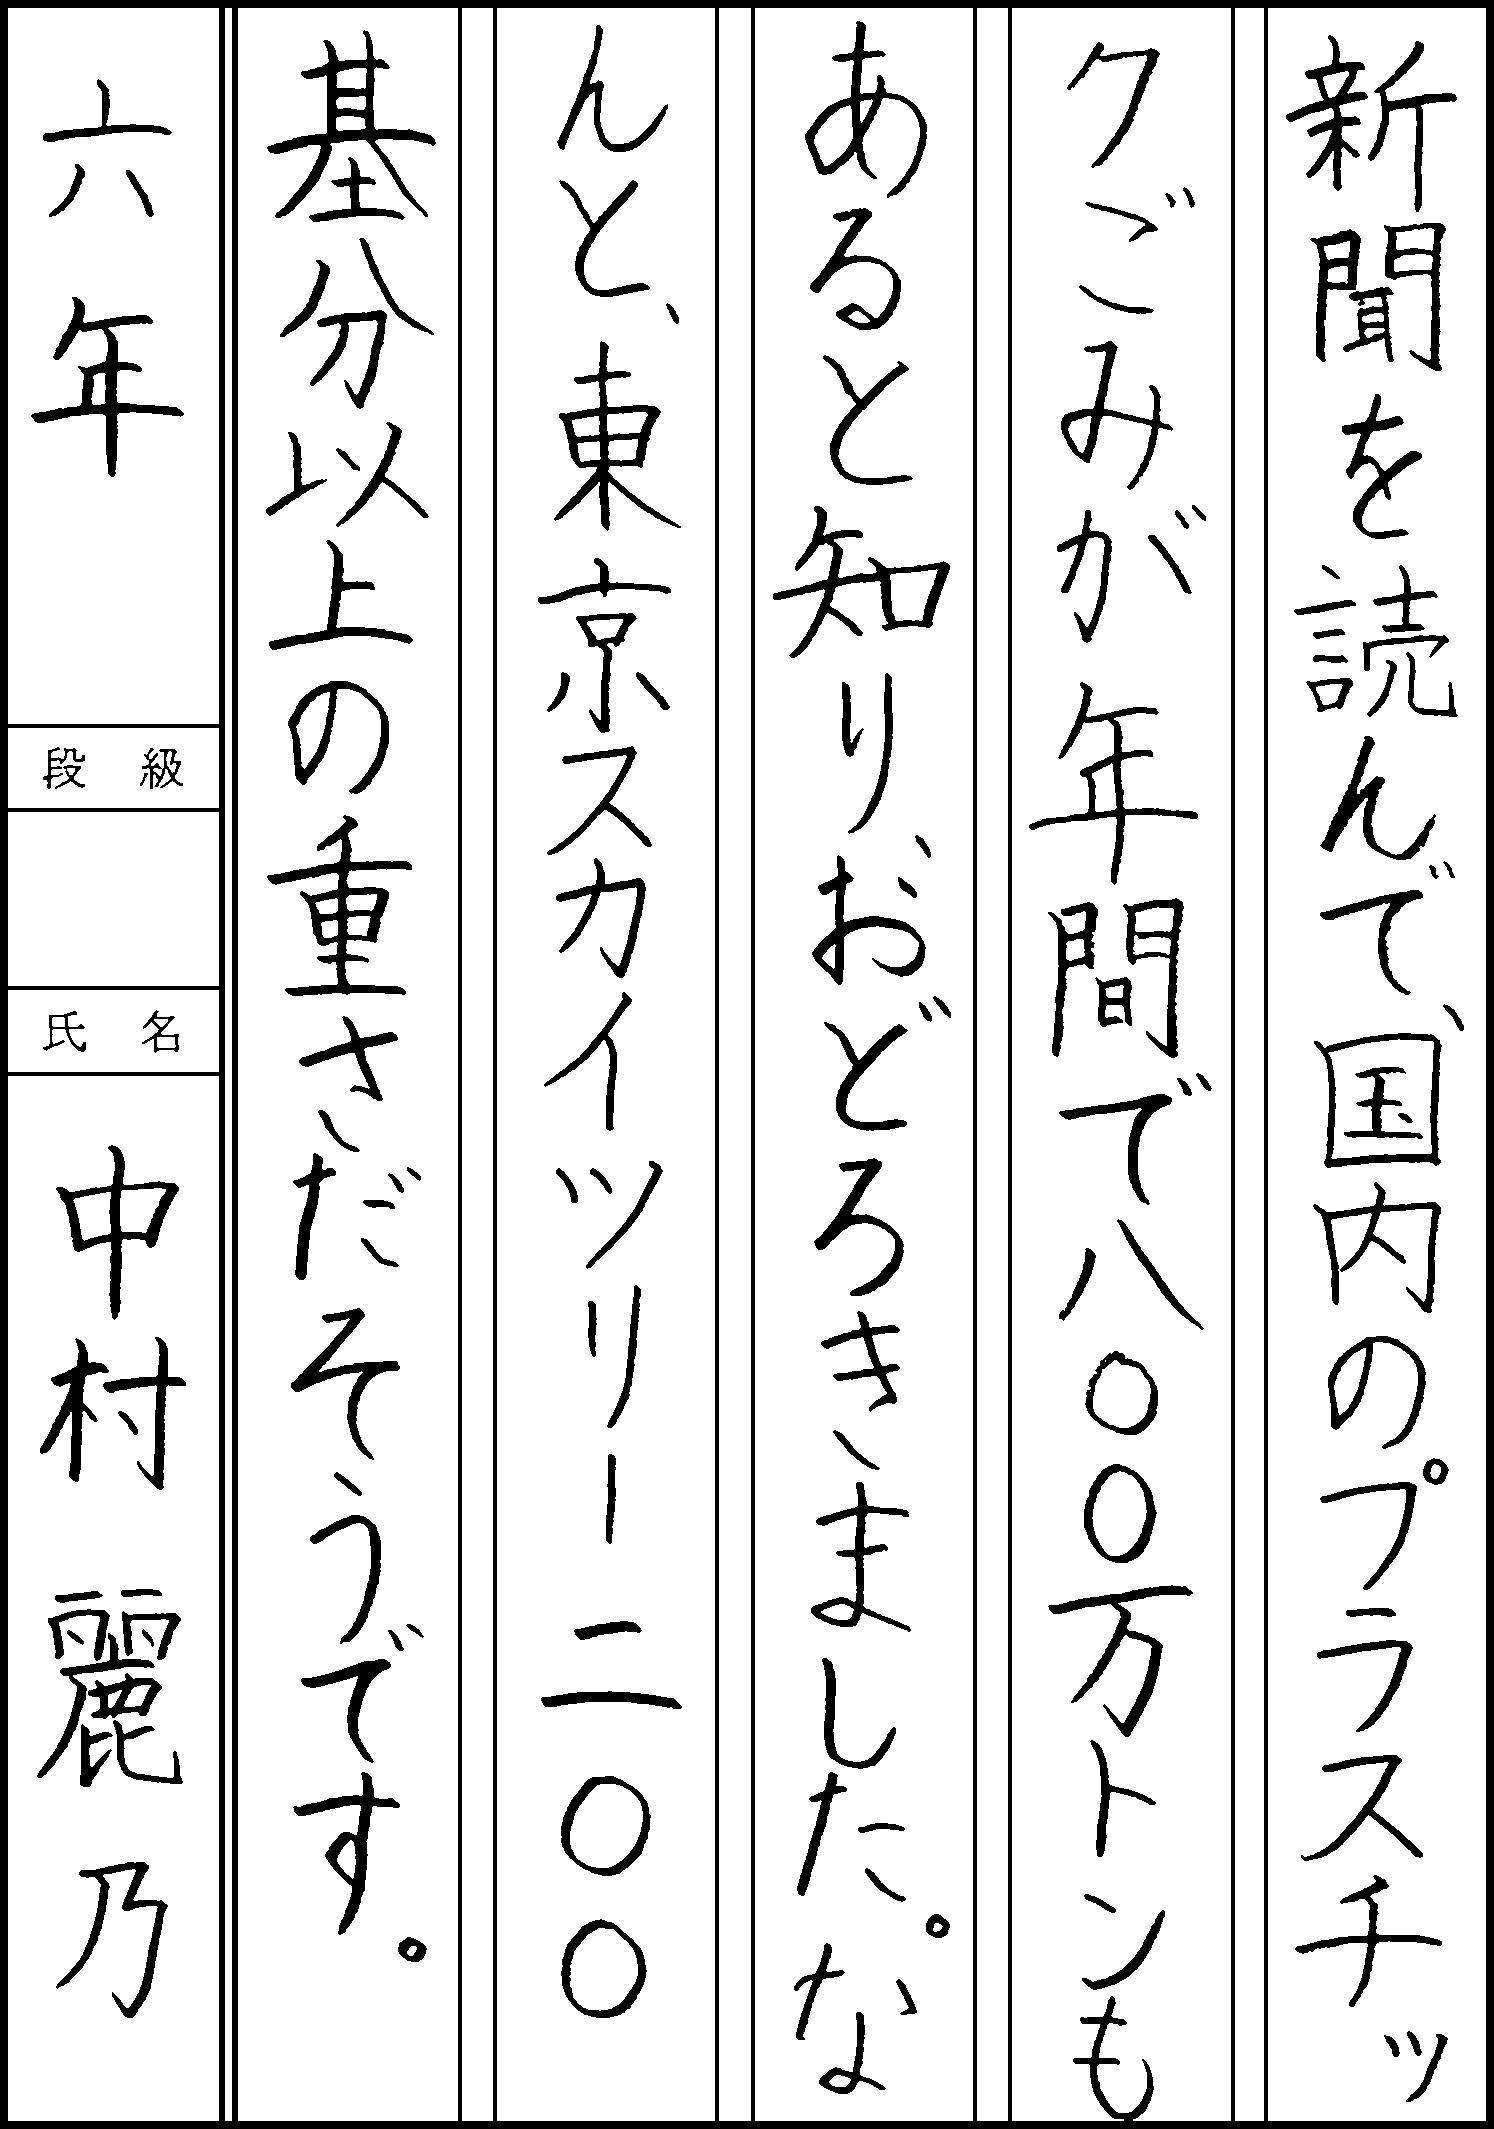 新聞を読んで、国内のプラスチッ
クごみが年間で八〇〇万トンも
あると知り、おどろきました。な
んと、東京スカイツリー二〇〇
基分以上の重さだそうです。
六年
段級
氏名
中村麗乃